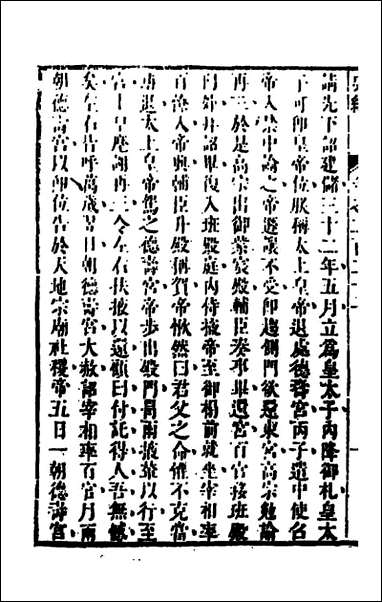 請先下詔建儲三十二年五月立爲皇太子內降御札皇太
子可卽皇帝位朕稱太上皇帝退處德壽宮丙子遣中使召
帝入禁中諭之帝遜讓不受卽趨側門欲還東宮高宗勉諭
再三於是高宗出御紫宸殿輔臣奏事畢還宮百官移班殿
門外拜詔畢復入班殿庭內侍掖帝至御榻前就坐宰相率
百僚入帝興輔臣升殿稱賀帝愀然曰君父之命惟不克當
尋退太上皇帝駕之德壽宮帝步出殿門冒雨掖輦以行至
宮上皇麾謝再三令左右扶掖以還顧曰付託得人吾無憾
矣左右皆呼萬歲翌日朝德壽宮大赦詔宰相率百官月兩
朝德壽宮以卽位告於天地宗廟社稷帝五日一朝德壽宮